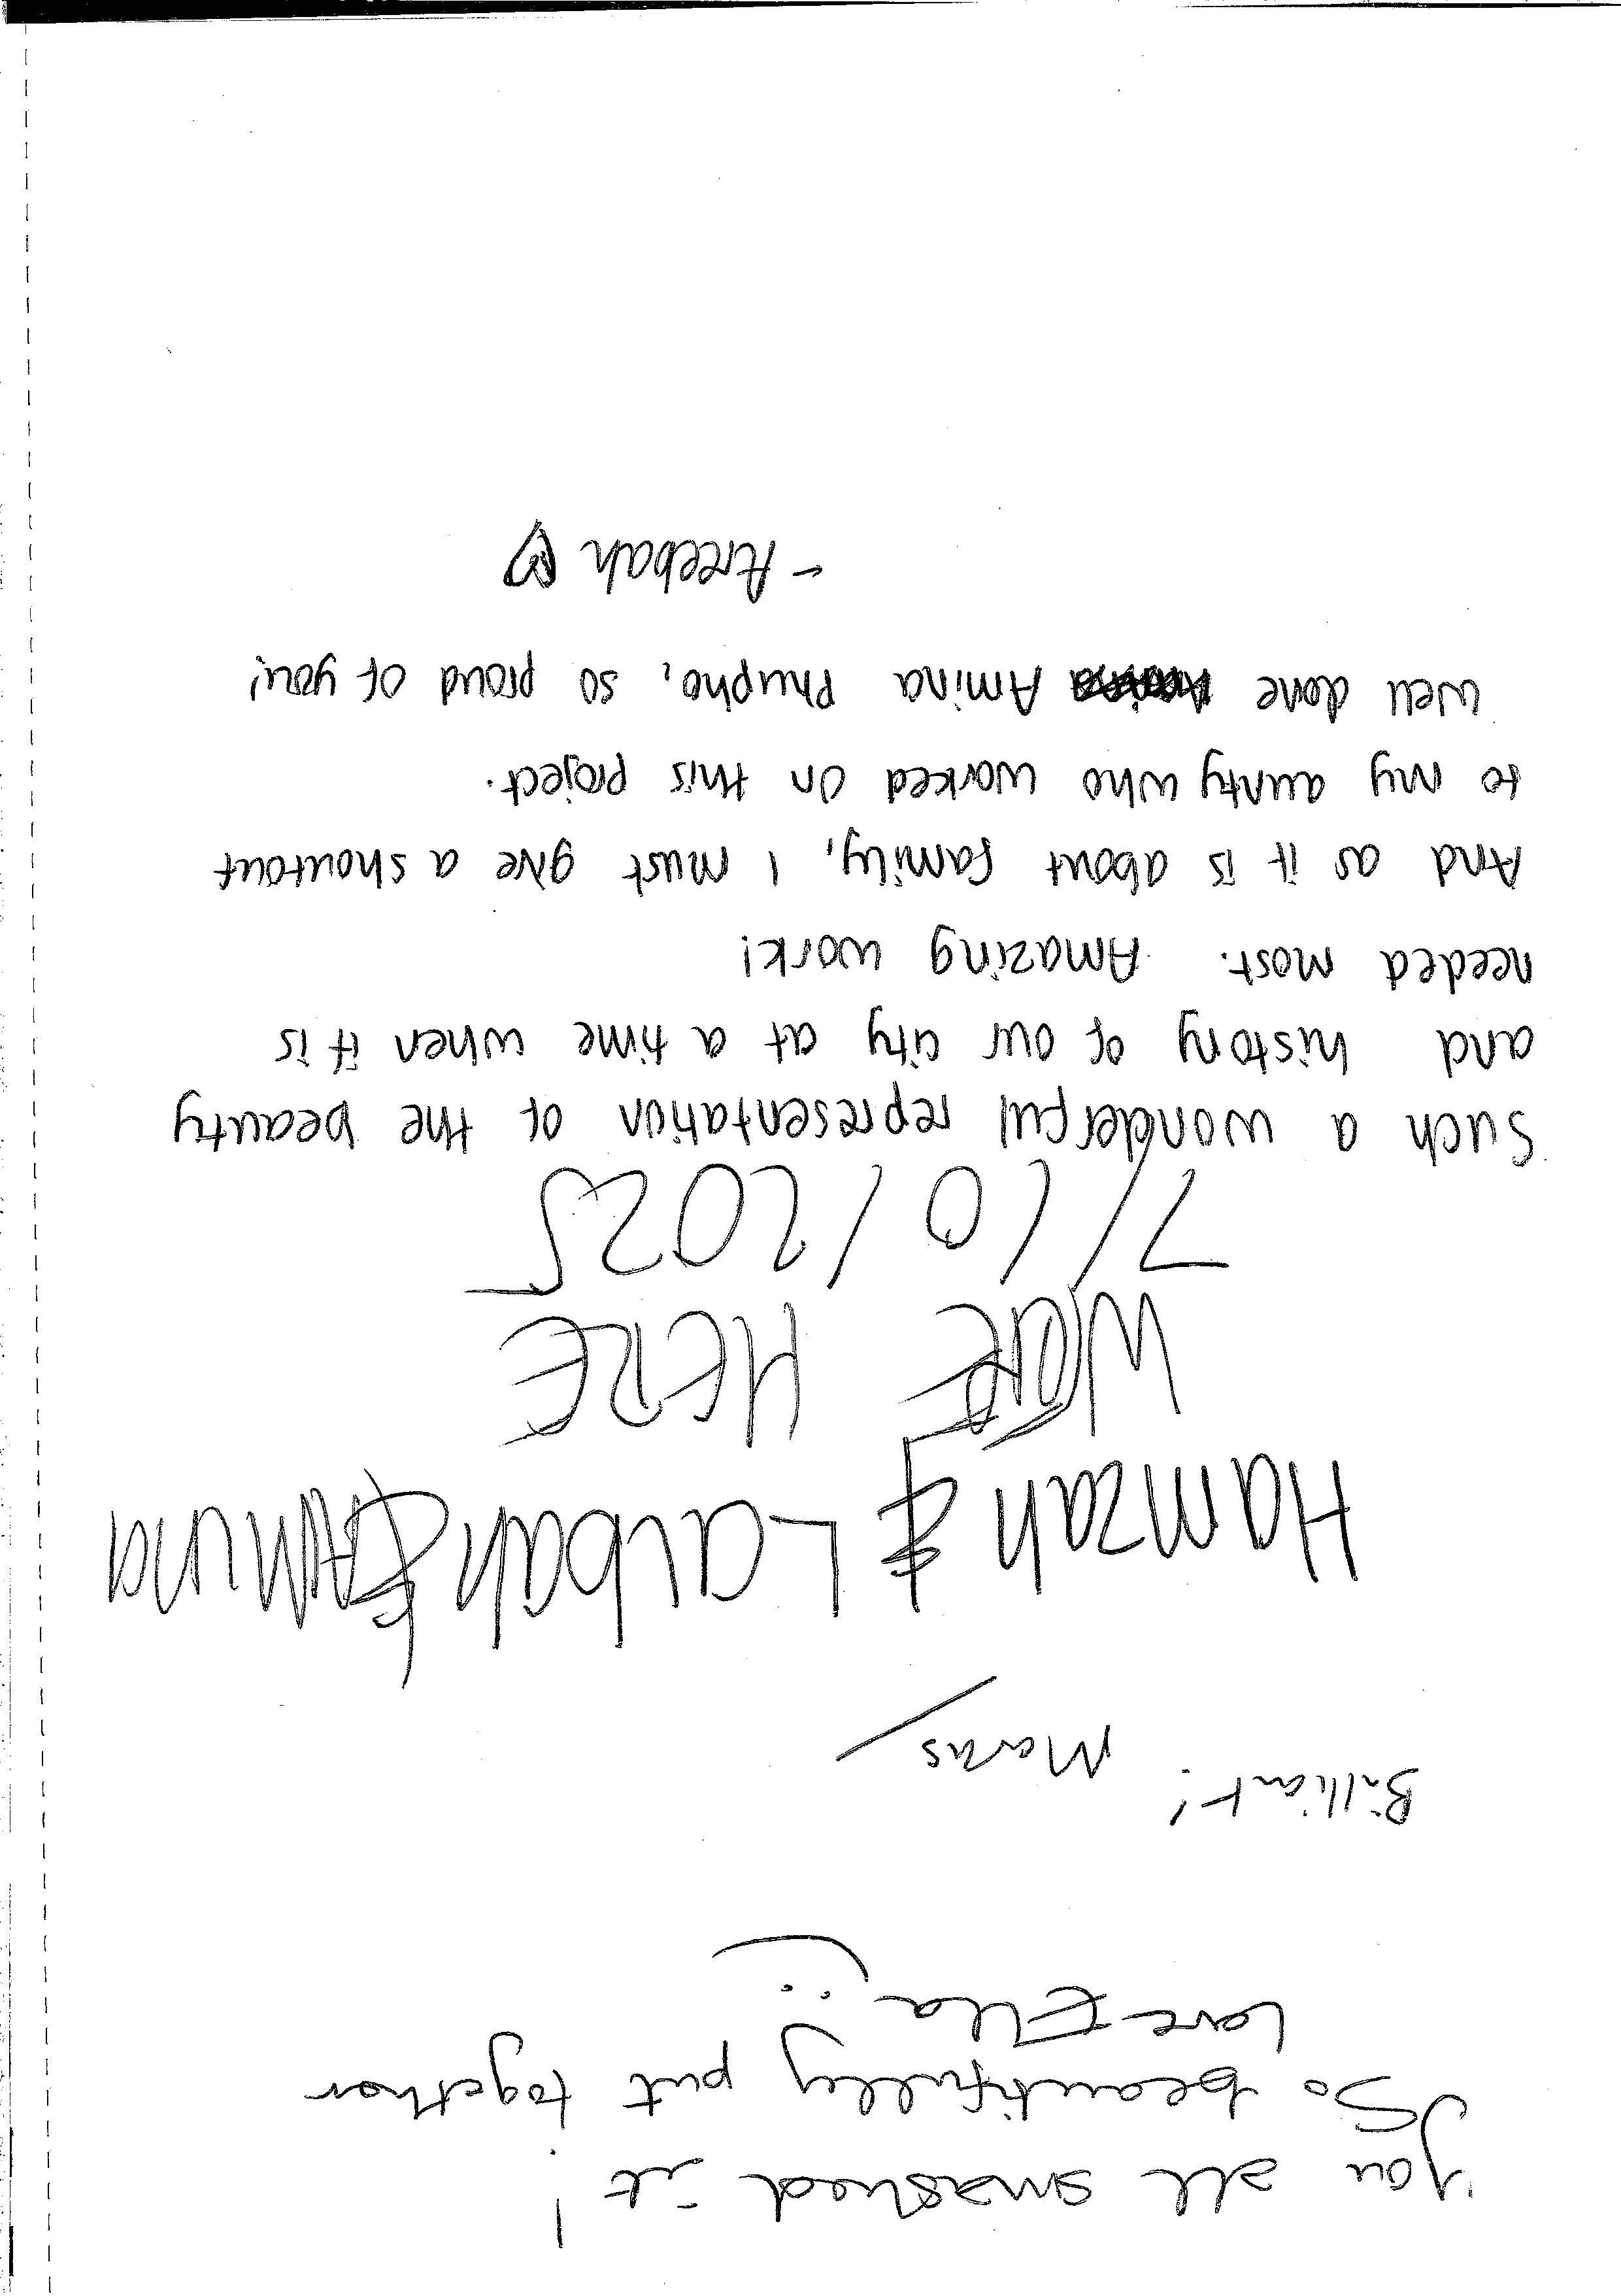 You all smashed it!
So beautifully put together
Love Ella :)
Brilliant! Marus
Hamzah & Laibah & Amina
WERE HERE
7/10/2025
Such a wonderful representation of the beauty
and history of our city at a time when it is
needed most. Amazing work!
And as it is about family, I must give a shoutout
to my aunty who worked on this project.
Well done Amina Phupho, so proud of you!
- Areebah ♡